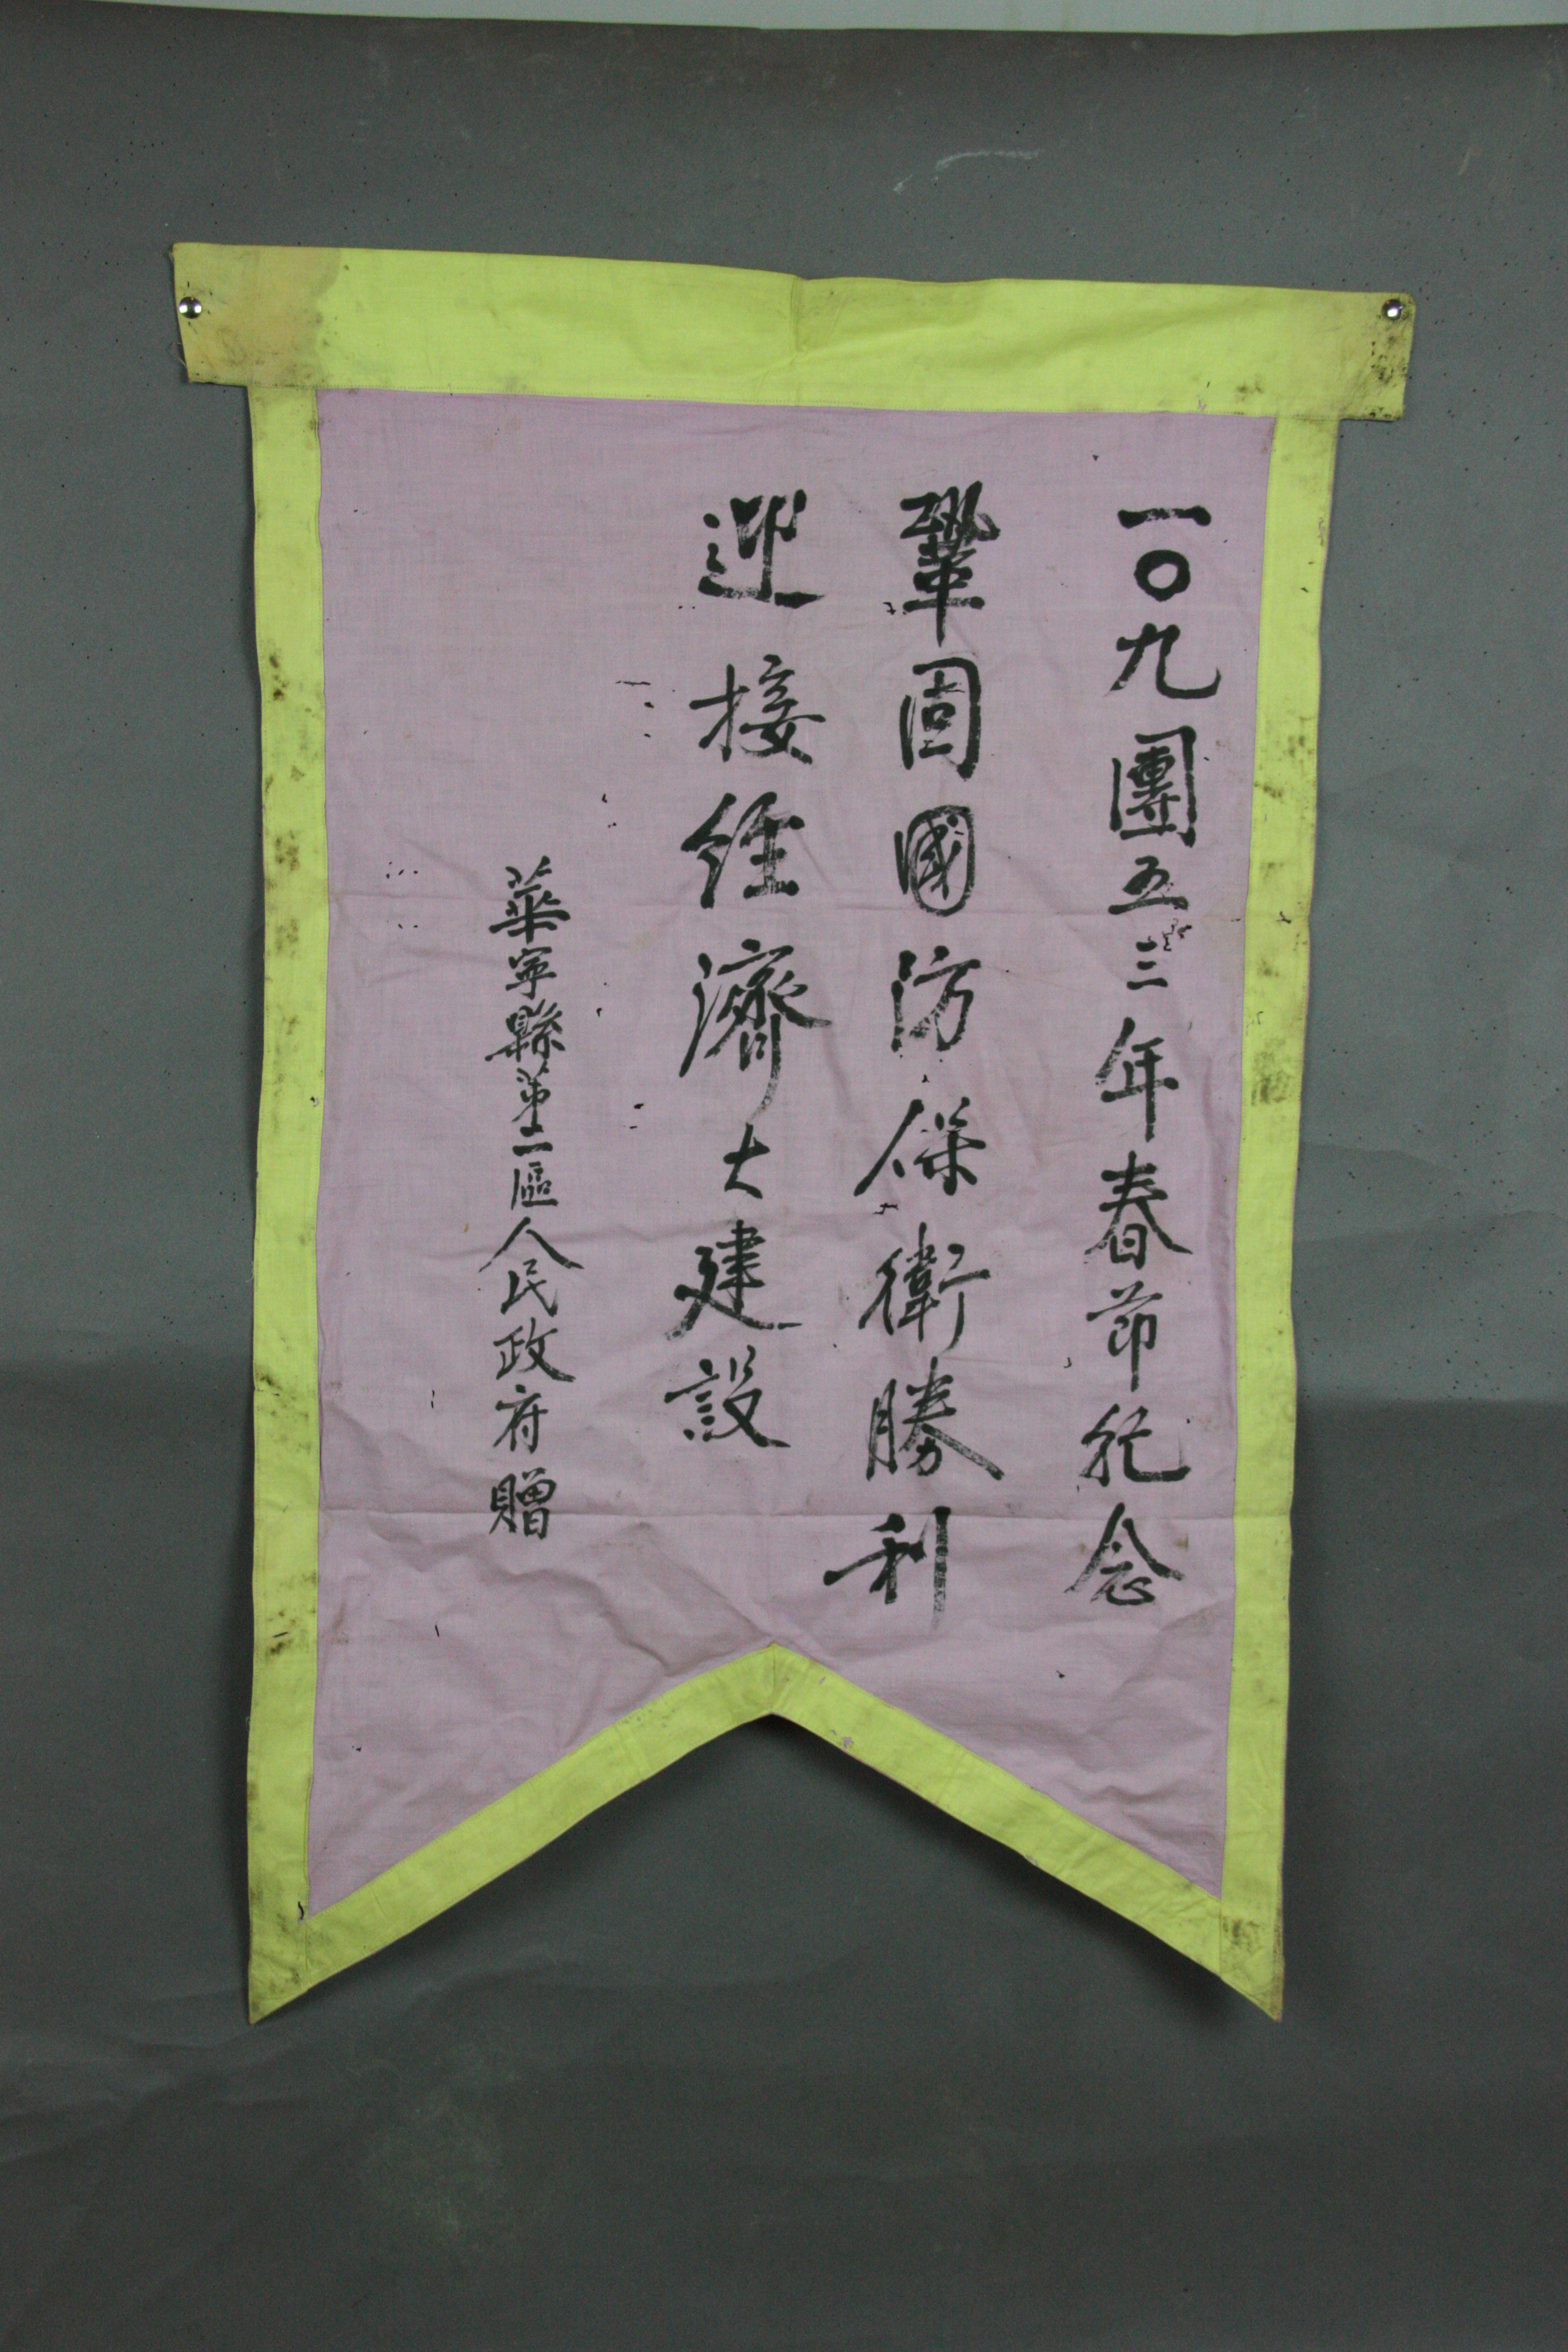 一〇九團五三年春節紀念
鞏固國防保衛勝利
迎接經濟大建設
華寧縣第二區人民政府贈